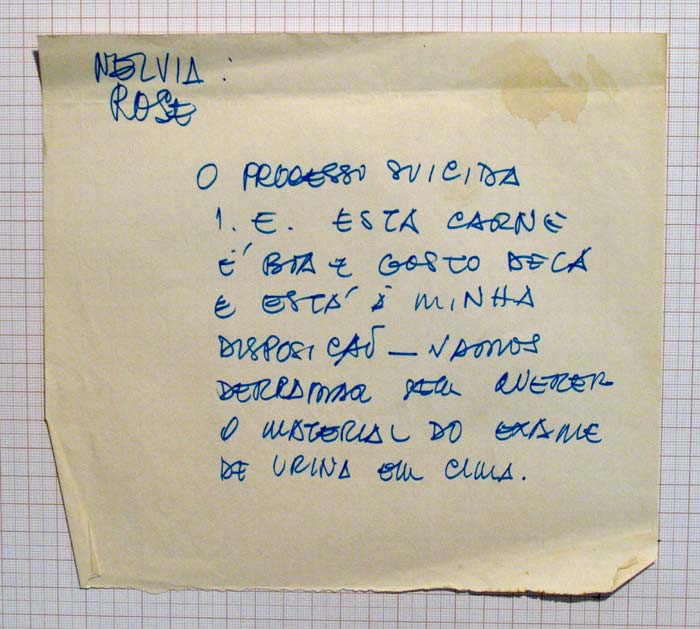 NELVIA :
ROSE
O PROCESSO SUICIDA
1. E. ESTA CARNE
E' BOA E GOSTO DELA
E ESTA' À MINHA
DISPOSIÇAÕ — VAMOS
DERRAMAR SEM QUERER
O MATERIAL DO EXAME
DE URINA EM CIMA.